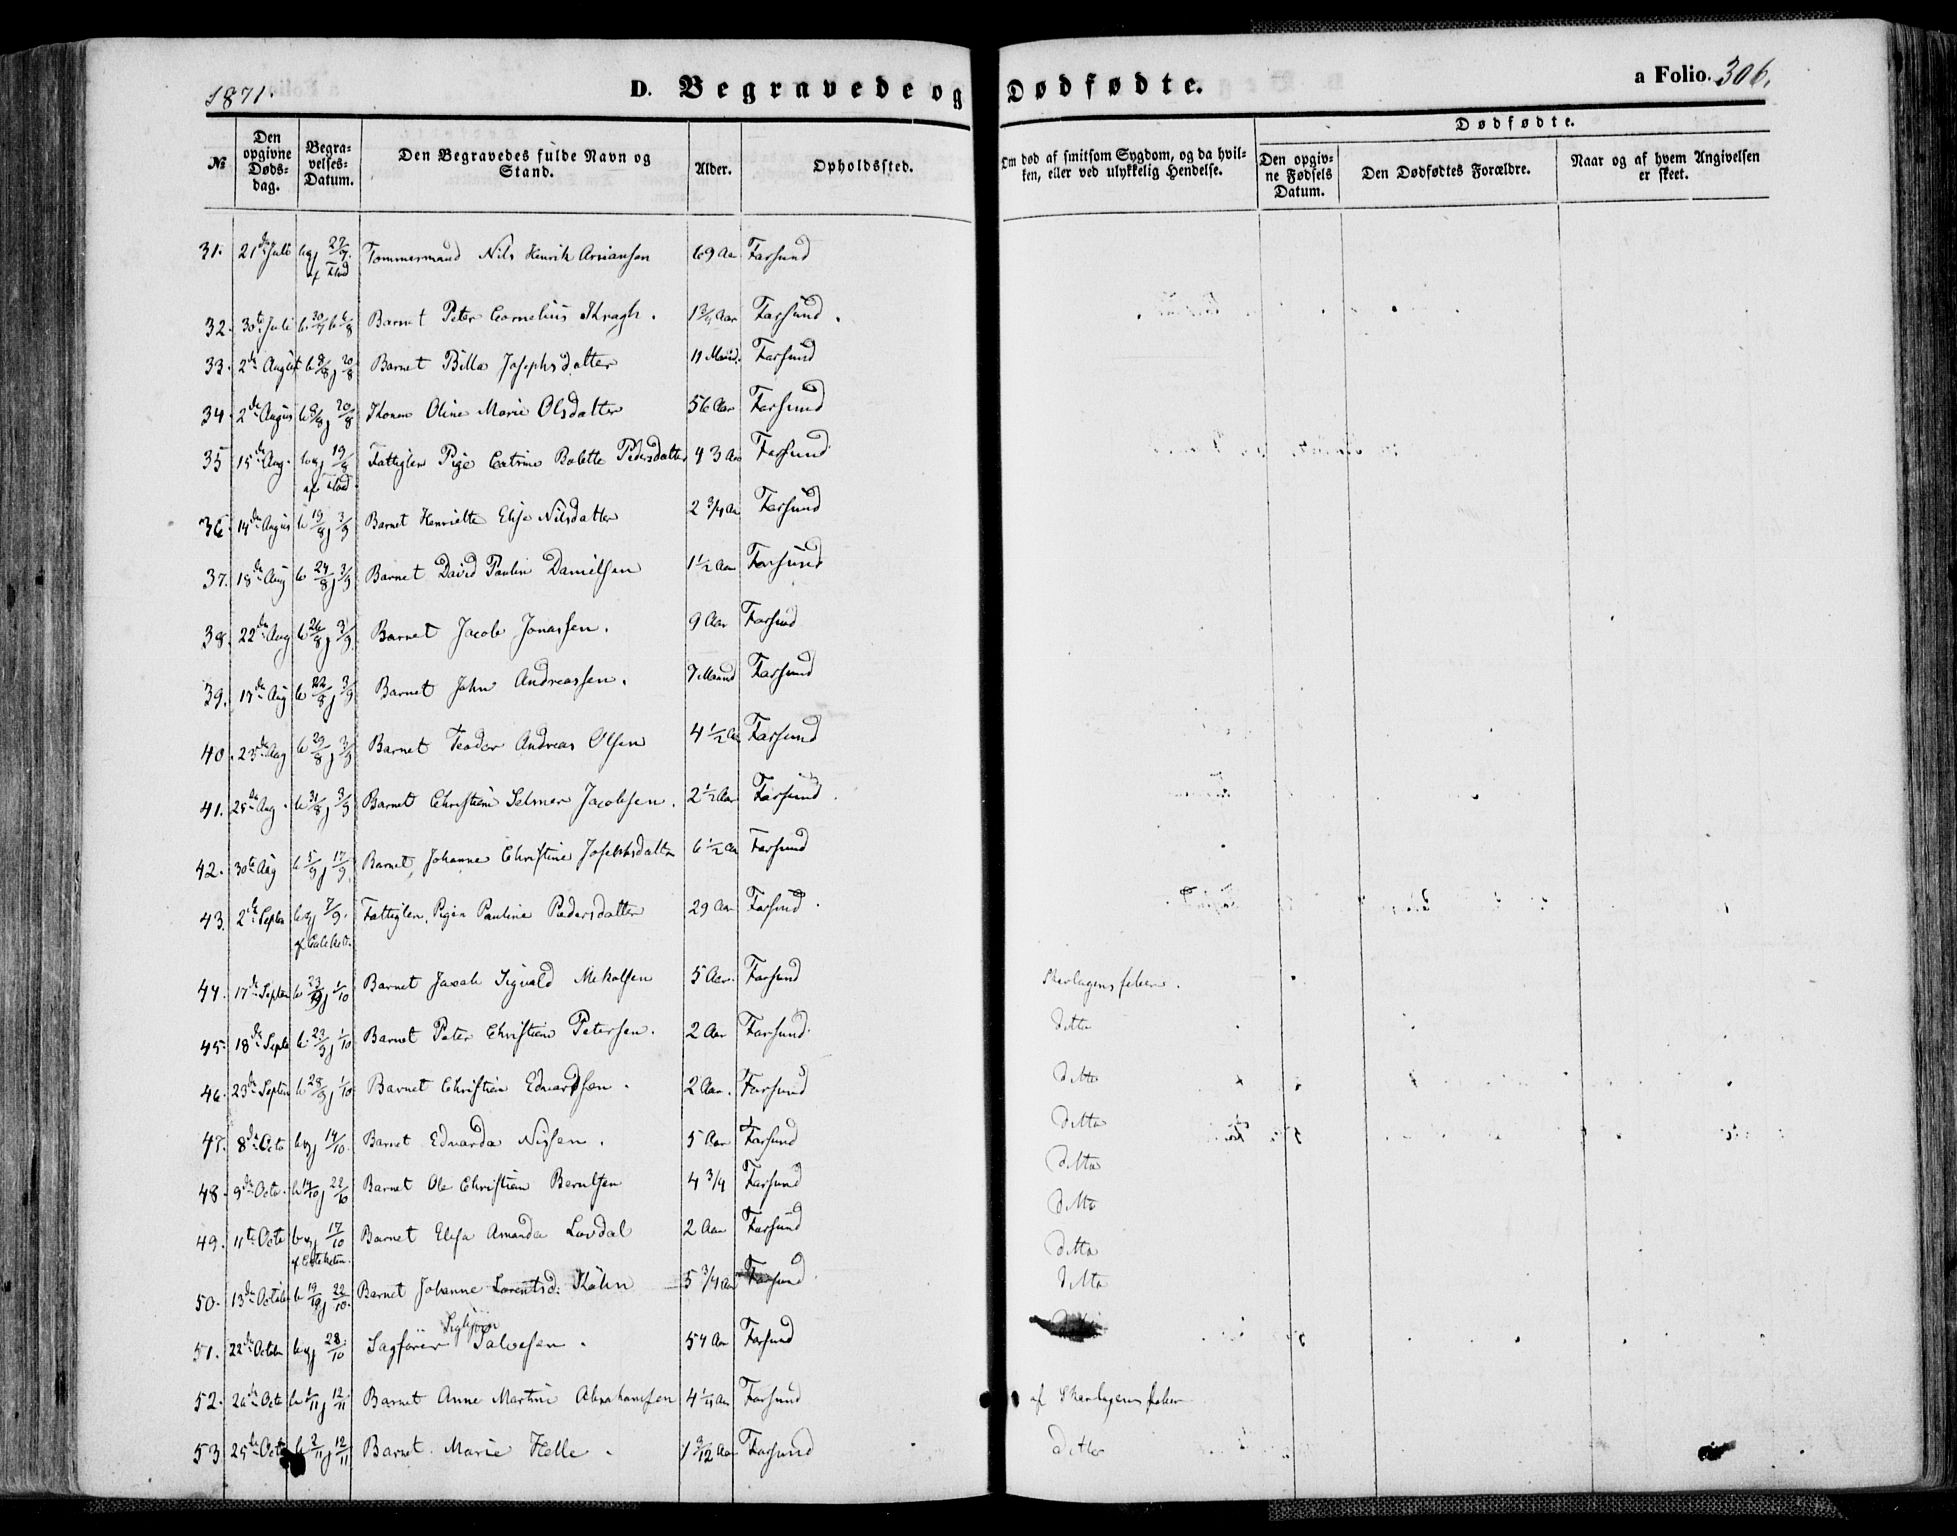 1871.
D. Begravede og Dødfødte.
a Folio. 306.
Dødfødte.
№
Den opgivne Døds-dag.
Begra-velses-Datum.
Den Begravedes fulde Navn og Stand.
Alder.
Opholdssted.
Om død af smitsom Sygdom, og da hvil-ken, eller ved ulykkelig Hendelse.
Den opgiv-ne Fødsels Datum.
Den Dødfødtes Forældre.
Naar og af hvem Angivelsen er skeet.
31. 21de Juli b og j 27/7. Tømmermand Nils Henrik Ariansen 69 Aar Farsund
32. 30te Juli Barnet Peter Cornelius Kragh. Farsund.
33. 2de August b 8/8 j 20/8 Barnet Billa Josephsdatter 11 Maad. Farsund
34. 2de Augus b 8/8 j 20/8 Konen Oline Marie Olsdatter 56 Aar Farsund
35 15de Aug. Fattiglem Pige Catrine Bolette Pedersdatter 43 Aar Farsund
36. 14de Augus b 19/8 j 3/9 Barnet Henriette Elise Nilsdatter 2 3/4 Aar Farsund
37. 18de Aug b 24/8 j 3/9 Barnet David Paulin Danielsen 1 1/2 Aar Farsund
38. 22de Aug b 26/8 j 3/9 Barnet Jacob Jonassen. 9 Aar Farsund
39. 17de Aug b 22/8 j 3/9 Barnet John Andreassen. 7 Maaned Farsund
40. 23de Aug b 29/8 j 3/9 Barnet Teodor Andreas Olsen 4 1/2 Aar Farsund
41. 25de Aug. b 31/8 j 3/9 Barnet Christian Selmer Jacobsen. 2 1/2 Aar Farsund.
42. 30te Aug b 5/9 j 17/9 Barnet, Johanne Christine Josephsdatter 6 1/2 Aar Farsund
43. 2de Septe b og j 7/9. Fattiglem, Pigen Pauline Pedersdatter 29 Aar Farsund.
44. 17de Septem b 23/9 j 1/10 Barnet Jacob Sigvald Mekalsen 5 Aar. Farsund Skarlagensfeber.
45. 18de Septe b 23/9 j 1/10 Barnet Peter Christian Petersen. 2 Aar Farsund. ditto
46. 23de Septem b 28/9 j 1/10 Barnet Christian Edvardsen. 2 Aar. Farsund ditto
47. 8de Octo b og j 14/10 Barnet Edvarda Nissen. 5 Aar Farsund ditto
48. 9de Octo. b 14/10 j 22/10 Barnet Ole Christian Berntsen 4 3/4 Farsund ditto
49. 11te Octo b og j 17/10 Barnet Elisa Amanda Lovdal 2 Aar Farsund ditto
ditto
50. 13de October b 19/10 j 22/10. Barnet Johanne Lorentsd. Køhn 5 3/4 Aar Farsund. ditto
51. 22de Octobr b og j 28/10 Sagfører Sigbjørn Salvesen. 54 Aar Farsund
52. Octo b 1/11 j 12/11 Barnet Anne Martine Abrahamsen 4 1/4 Aar Farsund af Skarlagensfeber
53 25de Octo b 2/11 j 12/11 Barnet. Marie Helle. Farsund ditto